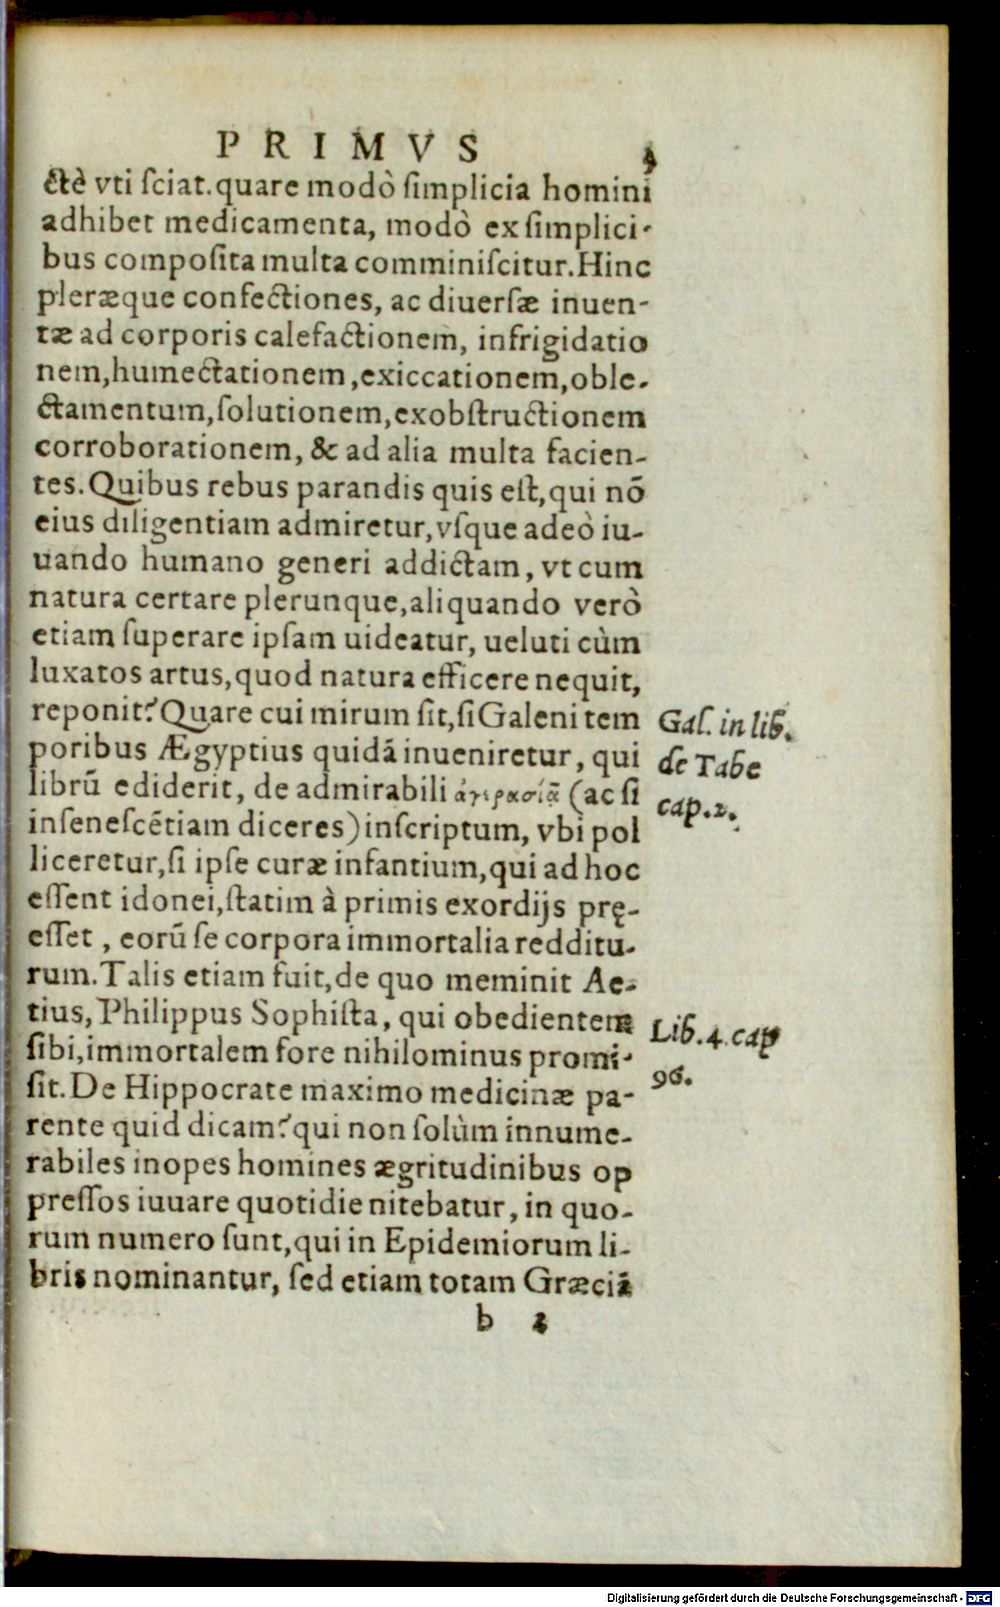 PRIMVS 9
ctè vti ſciat. quare modò ſimplicia homini
adhibet medicamenta, modò ex ſimplici-
bus compoſita multa comminiſcitur. Hinc
pleræque confectiones, ac diuerſæ inuen-
tæ ad corporis calefactionem, infrigidatio
nem, humectationem, exiccationem, oble-
ctamentum, ſolutionem, exobſtructionem
corroborationem, & ad alia multa facien-
tes. Quibus rebus parandis quis eſt, qui nō
eius diligentiam admiretur, vſque adeò iu-
uando humano generi addictam, vt cum
natura certare plerunque, aliquando verò
etiam ſuperare ipſam uideatur, ueluti cùm
luxatos artus, quod natura efficere nequit,
reponit? Quare cui mirum ſit, ſi Galeni tem
poribus Ægyptius quidā inueniretur, qui
librū ediderit, de admirabili (ac ſi
inſeneſcētiam diceres) inſcriptum, vbi pol
liceretur, ſi ipſe curæ infantium, qui ad hoc
eſſent idonei, ſtatim à primis exordijs pre̜-
eſſet, eorū ſe corpora immortalia redditu-
rum. Talis etiam fuit, de quo meminit Ae-
tius, Philippus Sophiſta, qui obedientem
ſibi, immortalem fore nihilominus promi-
ſit. De Hippocrate maximo medicinæ pa-
rente quid dicam? qui non ſolùm innume-
rabiles inopes homines ægritudinibus op
preſſos iuuare quotidie nitebatur, in quo-
rum numero ſunt, qui in Epidemiorum li-
bris nominantur, ſed etiam totam Græciā
b 2
Gal. in lib.
de Tabe
cap. 2.
Lib. 4. cap
96.
Digitalisierung gefördert durch die Deutsche Forschungsgemeinschaft - DFG